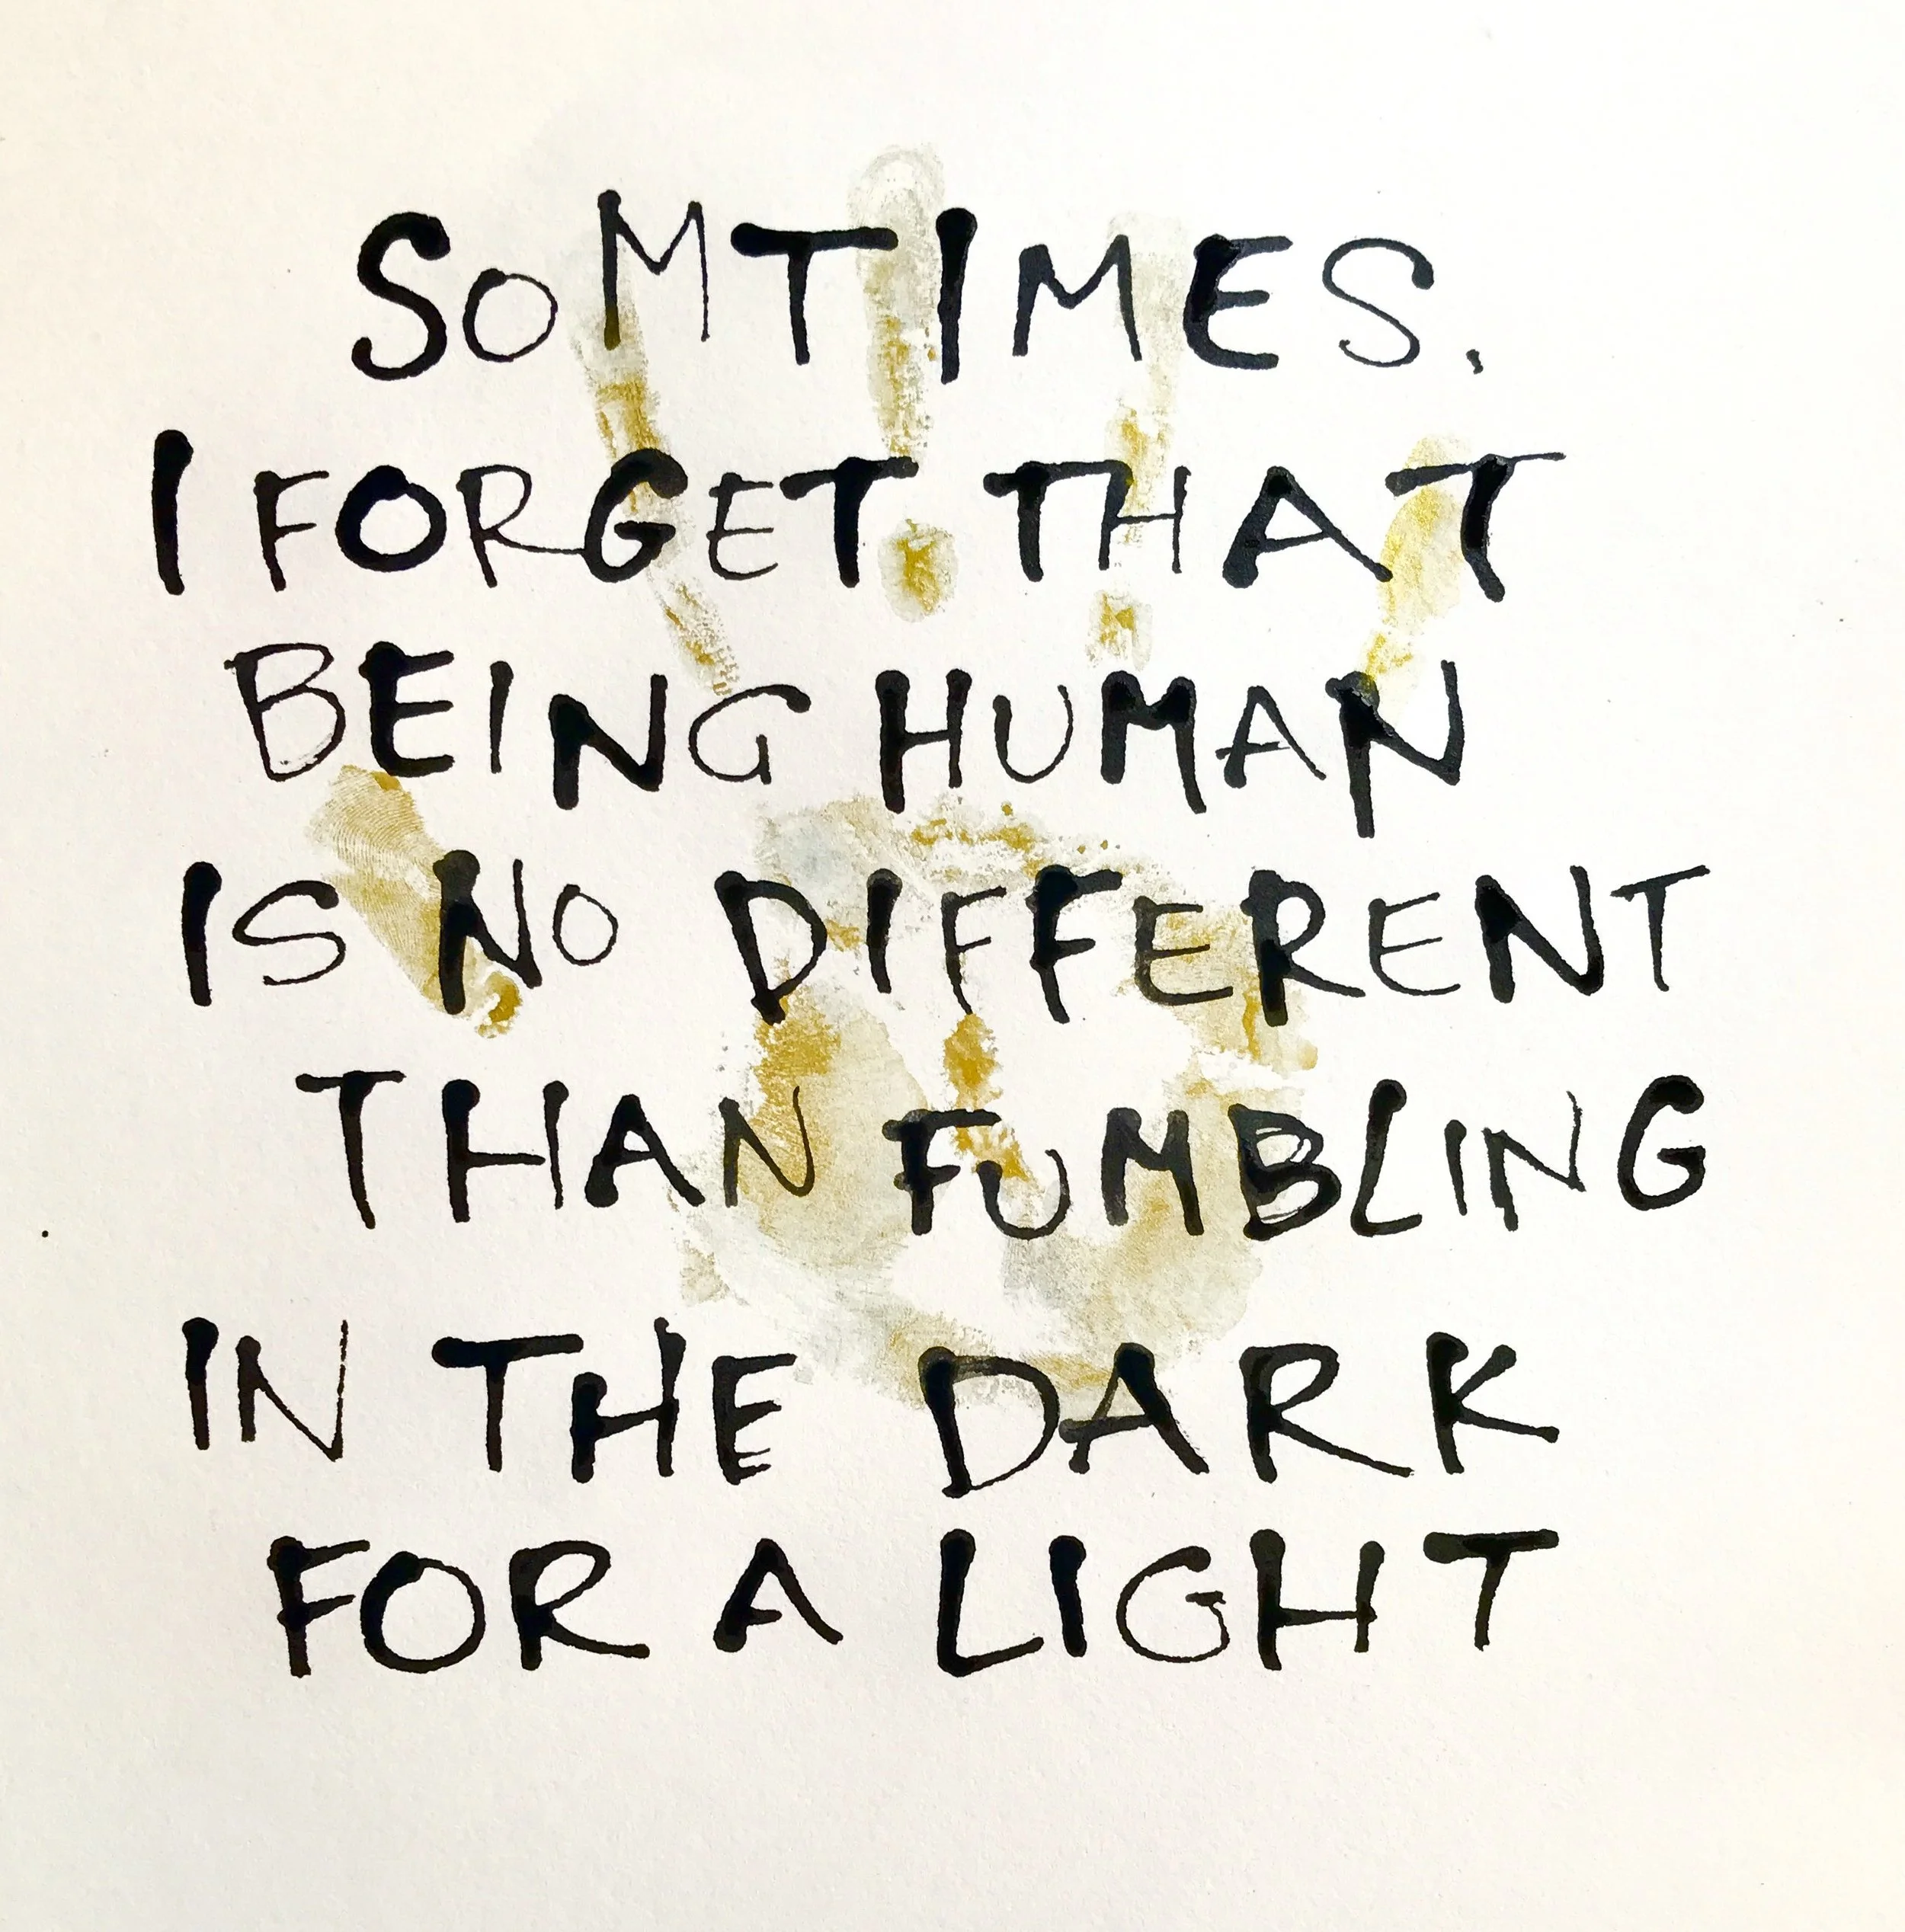 SOMTIMES,
I FORGET THAT
BEING HUMAN
IS NO DIFFERENT
THAN FUMBLING
IN THE DARK
FOR A LIGHT